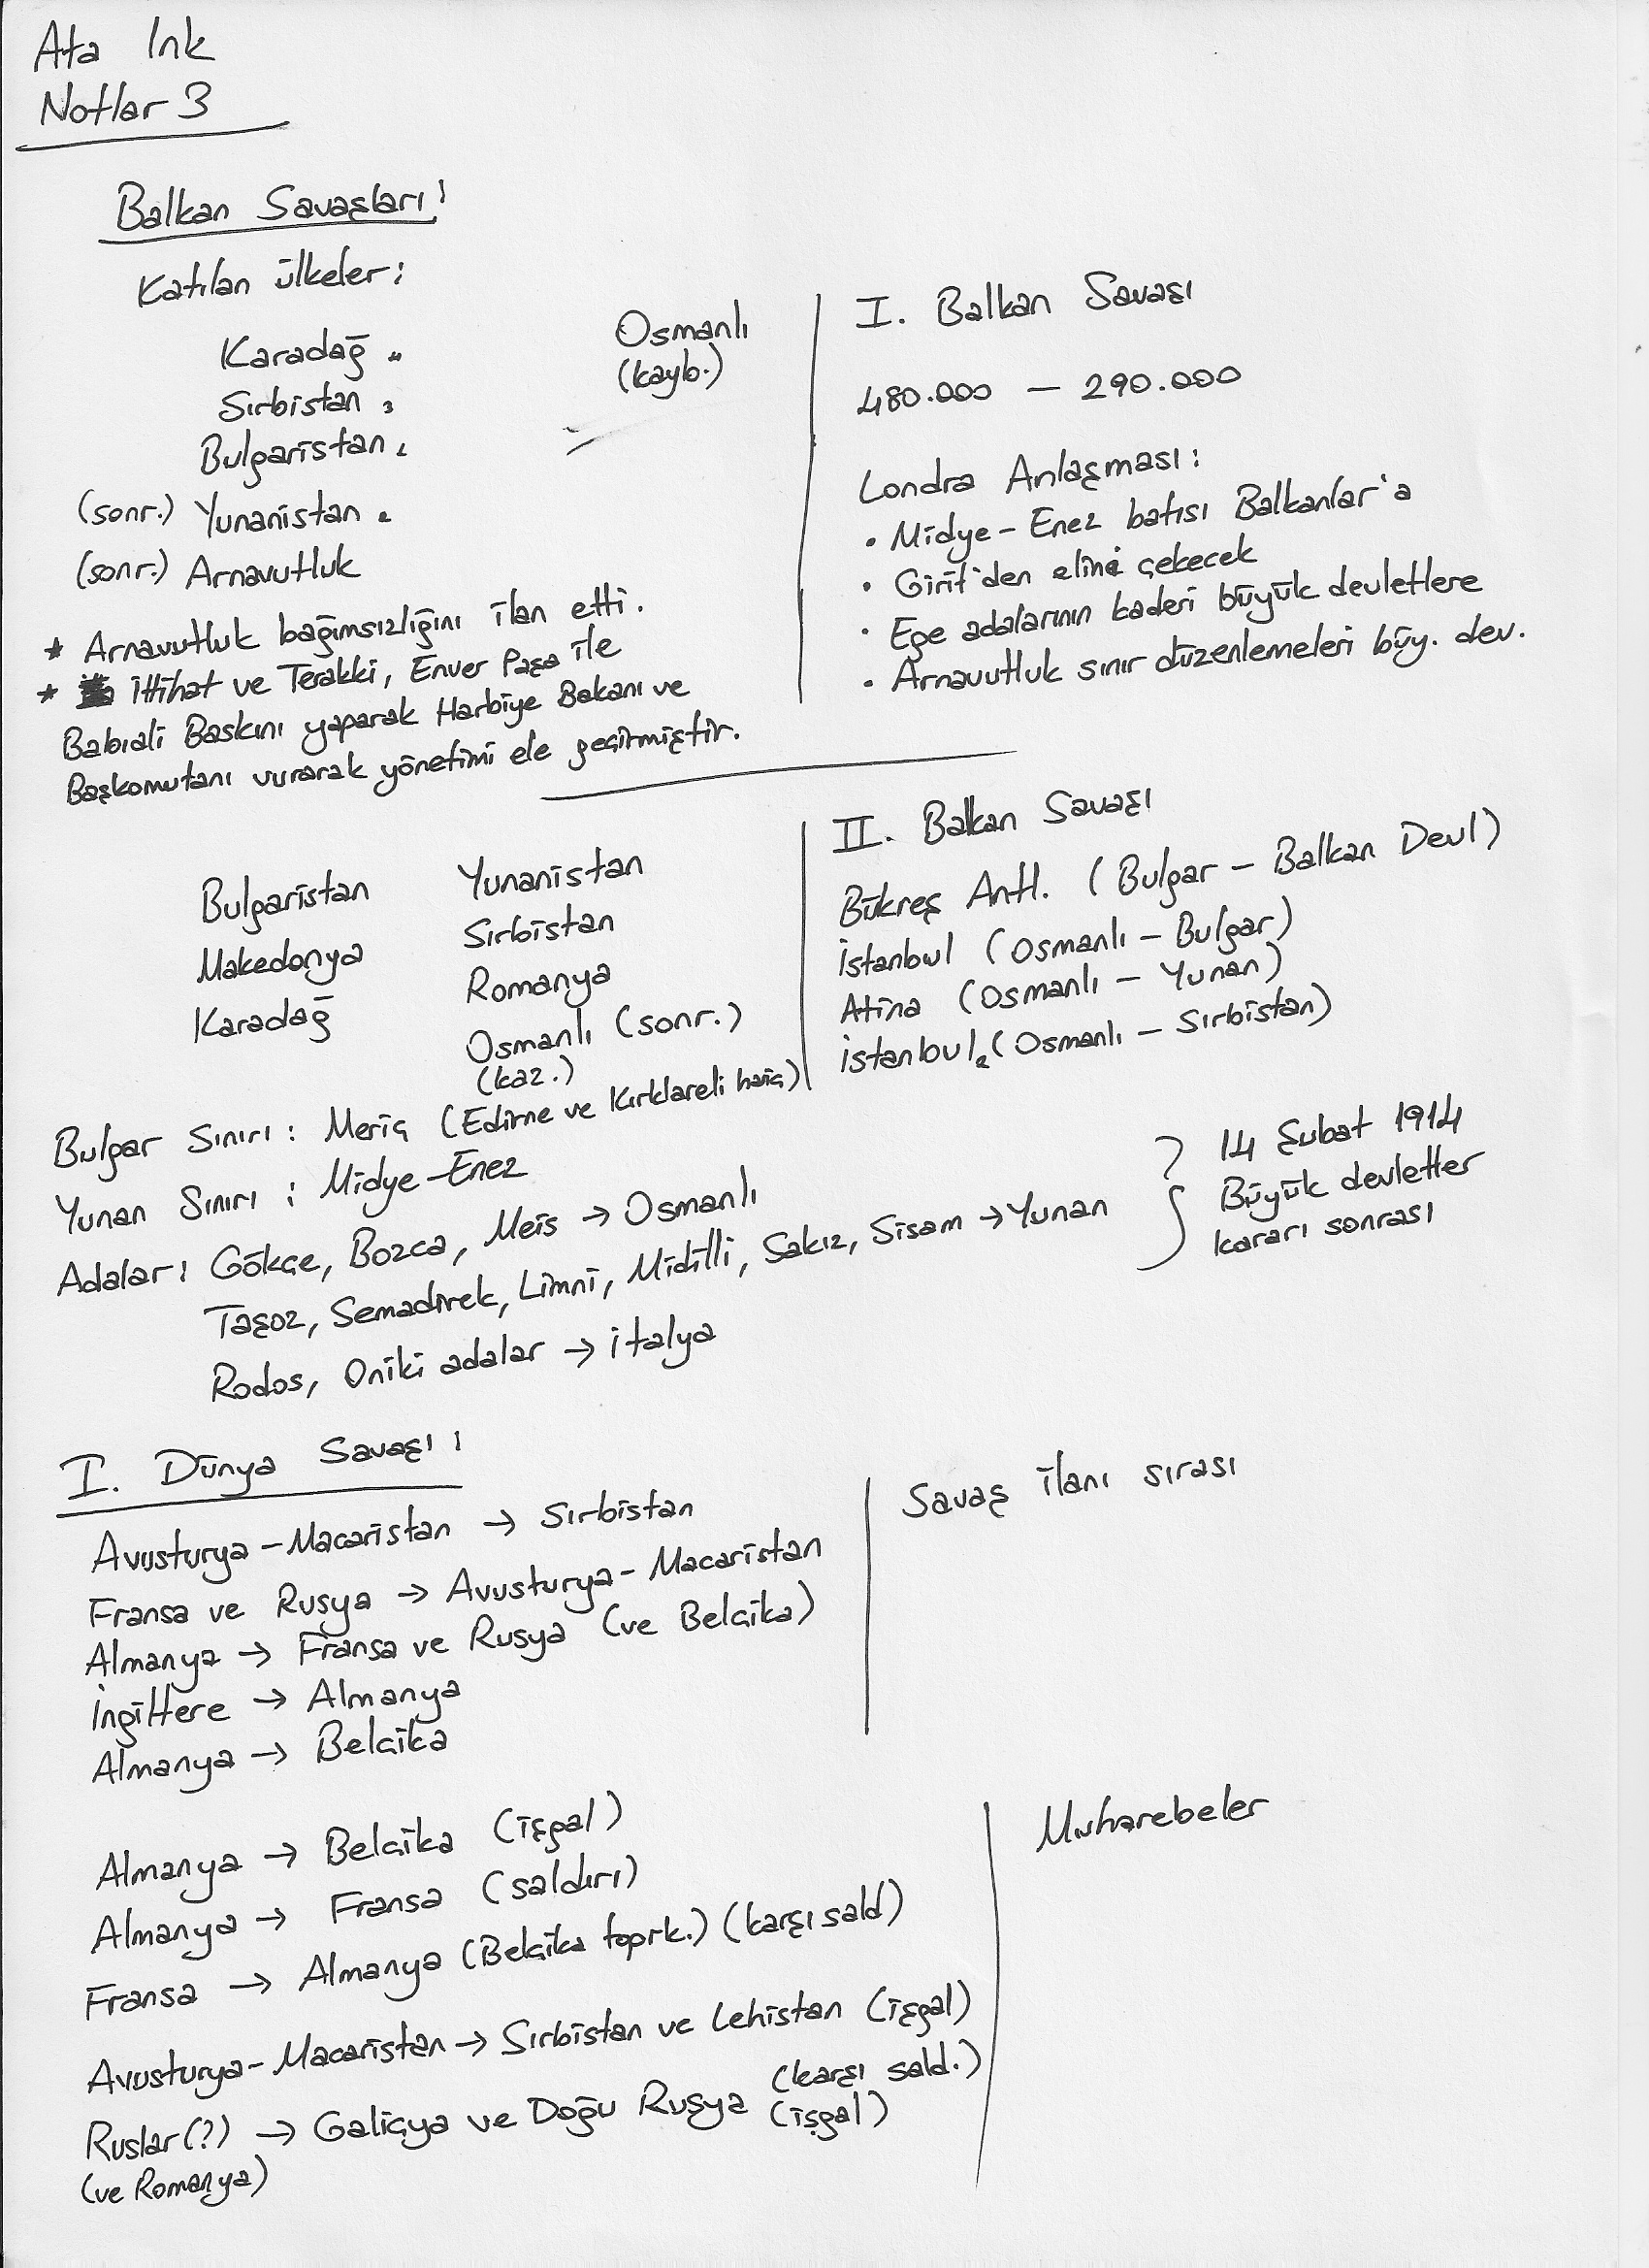 Ata Ink
Notlar 3
Balkan Savaşları:
Katılan ülkeler:
Karadağ
Sırbistan
Bulgaristan
(sonr.) Yunanistan
(sonr.) Arnavutluk
Osmanlı
(kayb.)
* Arnavutluk bağımsızlığını ilan etti.
* İttihat ve Terakki, Enver Paşa ile
Babıali Baskını yaparak Harbiye Bakanı ve
Başkomutanı vurarak yönetimi ele geçirmiştir.
I. Balkan Savaşı
480.000 — 290.000
Londra Anlaşması:
• Midye-Enez batısı Balkanlar'a
• Girit'den elini çekecek
• Ege adalarının kaderi büyük devletlere
• Arnavutluk sınır düzenlemeleri büy. dev.
Bulgaristan
Makedonya
Karadağ
Yunanistan
Sırbistan
Romanya
Osmanlı (sonr.)
(kaz.)
II. Balkan Savaşı
Bükreş Antl. (Bulgar - Balkan Devl)
İstanbul (Osmanlı - Bulgar)
Atina (Osmanlı - Yunan)
İstanbul2 (Osmanlı - Sırbistan)
Bulgar Sınırı: Meriç (Edirne ve Kırklareli hariç)
Yunan Sınırı: Midye-Enez
Adalar: Gökçe, Bozca, Meis → Osmanlı
Taşoz, Semadirek, Limni, Midilli, Sakız, Sisam → Yunan
Rodos, Oniki adalar → İtalya
14 Şubat 1914
Büyük devletler
kararı sonrası
I. Dünya Savaşı:
Avusturya-Macaristan → Sırbistan
Fransa ve Rusya → Avusturya-Macaristan
Almanya → Fransa ve Rusya (ve Belçika)
İngiltere → Almanya
Almanya → Belçika
Savaş ilanı sırası
Almanya → Belçika (işgal)
Almanya → Fransa (saldırı)
Fransa → Almanya (Belçika toprk.) (karşı sald)
Avusturya-Macaristan → Sırbistan ve Lehistan (işgal)
Ruslar(?) → Galiçya ve Doğu Rusya (karşı sald.)
(işgal)
(ve Romanya)
Muharebeler